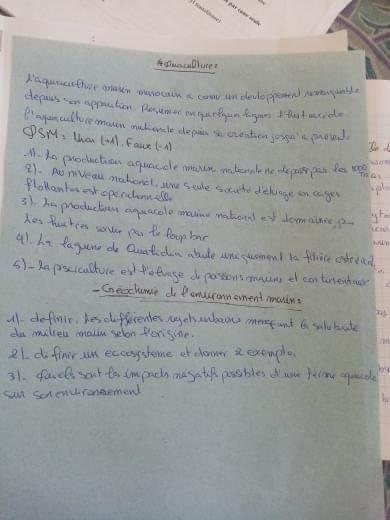 Aquaculture:
L'aquaculture marin marocain a connu un developpement remarquable
depuis son apparition. Resumer en quelques lignes l'histoire de
l'aquaculture marine nationale depuis sa création jusqu'a présent
QSM: Vrai (+1). Faux (-1)
1)- La production aquacole marine nationale ne depasse pas les 1000
2)- Au niveau national, une seule société d'elvage en cages
flottantes est operationnelle
3)- La production aquacole marine national est dominée, par
les huitres suivie par le loup bar
4)- La lagune de Oualidia abrite uniquement la filière ostréicole
5)- La pisciculture est l'elvage de poissons marins et continentaux
- Geochimie de l'environnement marin:
1)- definir. Les différentes rejets urbains menaçant la salubrité
du milieu marin selon l'origine.
2)- definir un ecosysteme et donner 2 exemples
3)- Quels sont les impacts négatifs possibles d'une ferme aquacole
sur son environnement